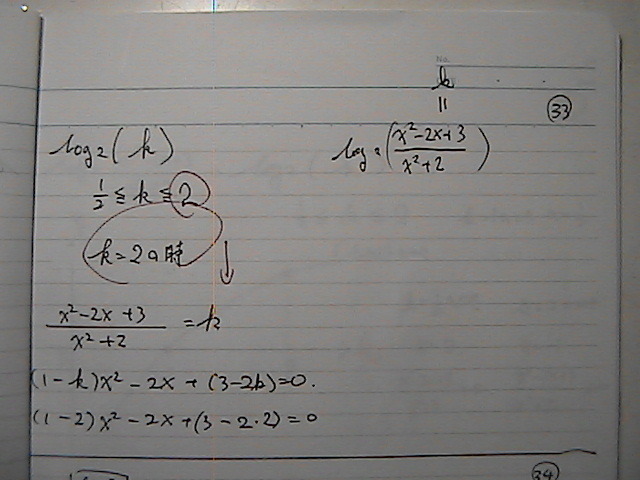 No.
k
||
㉝
log₂(k)
log₂((x²-2x+3)/(x²+2))
1/2 ≦ k ≦ 2
k=2の時
↓
(x²-2x+3)/(x²+2) = k
(1-k)x²-2x+(3-2k)=0.
(1-2)x²-2x+(3-2・2)=0
㉞